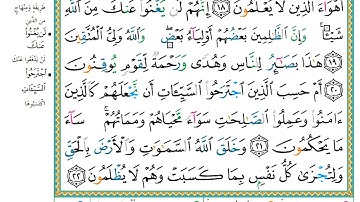 أَهْوَاءَ الَّذِينَ لَا يَعْلَمُونَ ١٨ إِنَّهُمْ لَن يُغْنُوا عَنكَ مِنَ اللَّهِ
شَيْئًا وَإِنَّ الظَّالِمِينَ بَعْضُهُمْ أَوْلِيَاءُ بَعْضٍ وَاللَّهُ وَلِيُّ الْمُتَّقِينَ
١٩ هَٰذَا بَصَائِرُ لِلنَّاسِ وَهُدًى وَرَحْمَةٌ لِّقَوْمٍ يُوقِنُونَ
٢٠ أَمْ حَسِبَ الَّذِينَ اجْتَرَحُوا السَّيِّئَاتِ أَن نَّجْعَلَهُمْ كَالَّذِينَ
ءَامَنُوا وَعَمِلُوا الصَّالِحَاتِ سَوَاءً مَّحْيَاهُمْ وَمَمَاتُهُمْ سَاءَ
مَا يَحْكُمُونَ ٢١ وَخَلَقَ اللَّهُ السَّمَاوَاتِ وَالْأَرْضَ بِالْحَقِّ
وَلِتُجْزَىٰ كُلُّ نَفْسٍ بِمَا كَسَبَتْ وَهُمْ لَا يُظْلَمُونَ ٢٢
من الدين
لَن يُغْنُوا
عَنكَ
لن يدفعوا عنك
اجْتَرَحُوا
السَّيِّئَاتِ
اكتسبوها